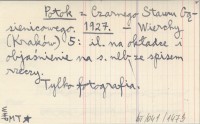 Potok z Czarnego Stawu Gą-
sienicowego. 1927. – Wierchy
(Kraków) 5: il. na okładce i
objaśnienie na s. nlb. ze spisem
rzeczy.
Tylko fotografia.
MT*